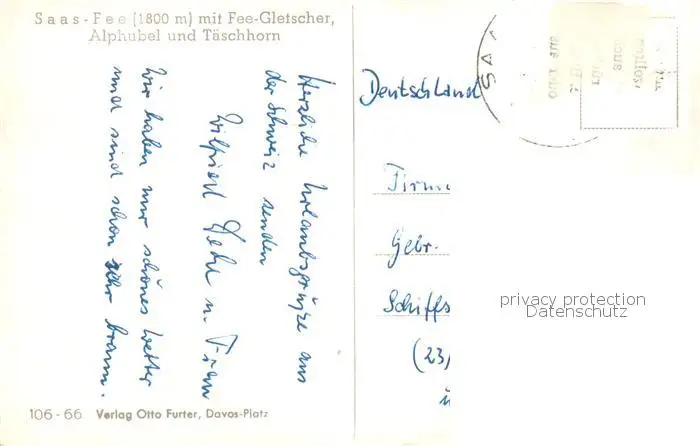 Saas-Fee (1800 m) mit Fee-Gletscher,
Alphubel und Täschhorn
Herzliche Urlaubsgrüße aus
der Schweiz senden
Wilfried u. Frau
Wir haben nur schönes Wetter
und sind schon sehr braun.
106-66 Verlag Otto Furter, Davos-Platz
Deutschland
Firma
Gebr.
Schiffs
(23)
privacy protection
Datenschutz